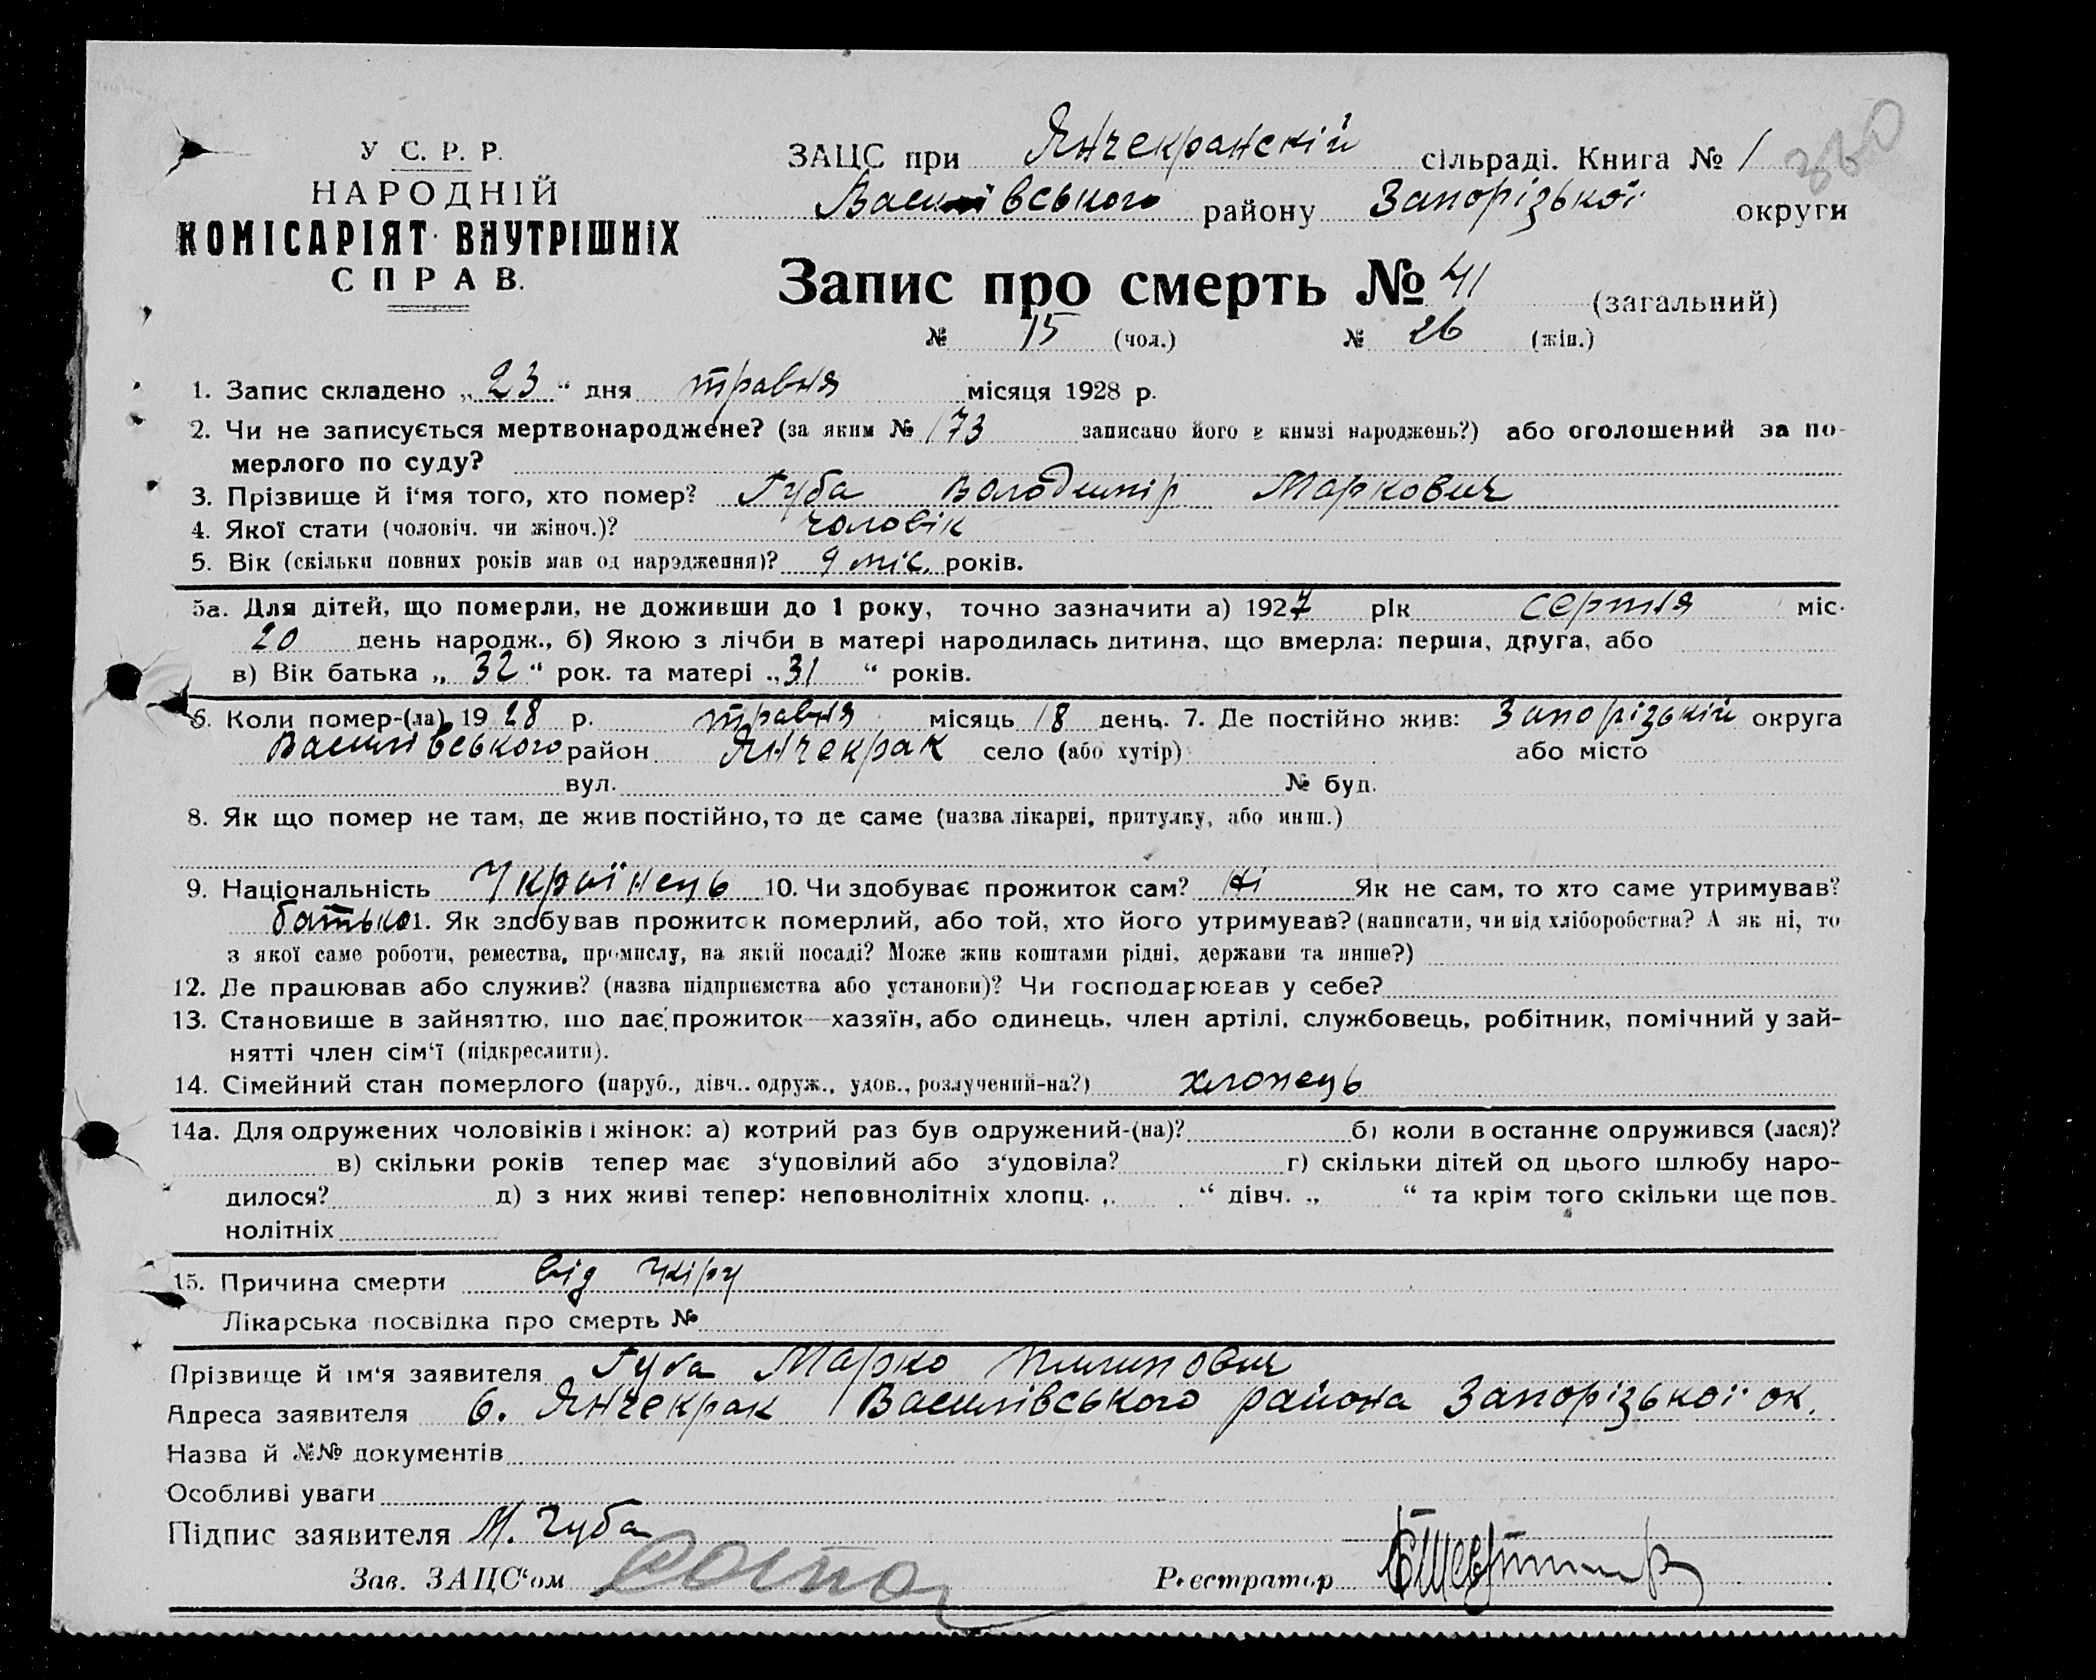 У С. Р. Р.
НАРОДНІЙ
КОМІСАРІЯТ ВНУТРІШНІХ
СПРАВ.
360
ЗАЦС при Янчекранскій сільраді. Книга № 1
Василівського району Запорізької округи
Запис про смерть № 41 (загальний)
№ 15 (чол.) № 26 (жін.)
1. Запис складено „ 23 “ дня травня місяця 1928 р.
2. Чи не записується мертвонароджене? (за яким № 173 записано його в книзі народжень?) або оголошений за по-
мерлого по суду?
3. Прізвище й і‘мя того, хто помер? Губа Володимір Маркович
4. Якої стати (чоловіч. чи жіноч.)? чоловік
5. Вік (скільки повних років мав од народження)? 9 міс. років.
5а. Для дітей, що померли, не доживши до 1 року, точно зазначити а) 1927 рік серпня міс.
20 день народж., б) Якою з лічби в матері народилась дитина, що вмерла: перша, друга, або
в) Вік батька „ 32 “ рок. та матері „ 31 “ років.
6. Коли помер-(ла) 1928 р. травня місяць 18 день. 7. Де постійно жив: Запорізькій округа
Василівського район Янчекрак село (або хутір) або місто
вул. № буд.
8. Як що помер не там, де жив постійно, то де саме (назва лікарні, притулку, або инш.)
9. Національність Українець 10. Чи здобуває прожиток сам? ні Як не сам, то хто саме утримував?
батько 11. Як здобував прожиток померлий, або той, хто його утримував? (написати, чи від хліборобства? А як ні, то
з якої саме роботи, ремества, промислу, на якій посаді? Може жив коштами рідні, держави та инше?)
12. Де працював або служив? (назва підприємства або установи)? Чи господарював у себе?
13. Становище в зайняттю, що дає прожиток—хазяїн, або одинець, член артілі, службовець, робітник, помічний у зай-
нятті член сім‘ї (підкреслити).
14. Сімейний стан померлого (паруб., дівч.. одруж., удов., розлучений-на?) хлопець
14а. Для одружених чоловіків і жінок: а) котрий раз був одружений-(на)? б) коли востаннє одружився (лася)?
в) скільки років тепер має з‘удовілий або з‘удовіла? г) скільки дітей од цього шлюбу наро-
дилося? д) з них живі тепер: неповнолітніх хлопц. „ “ дівч. „ “ та крім того скільки ще пов-
нолітніх
15. Причина смерти від кіру
Лікарська посвідка про смерть №
Прізвище й ім‘я заявителя Губа Марко Пилипович
Адреса заявителя с. Янчекрак Василівського района Запорізької ок.
Назва й №№ документів
Особливі уваги
Підпис заявителя М. Губа
Зав. ЗАЦС‘ом
Реєстратор